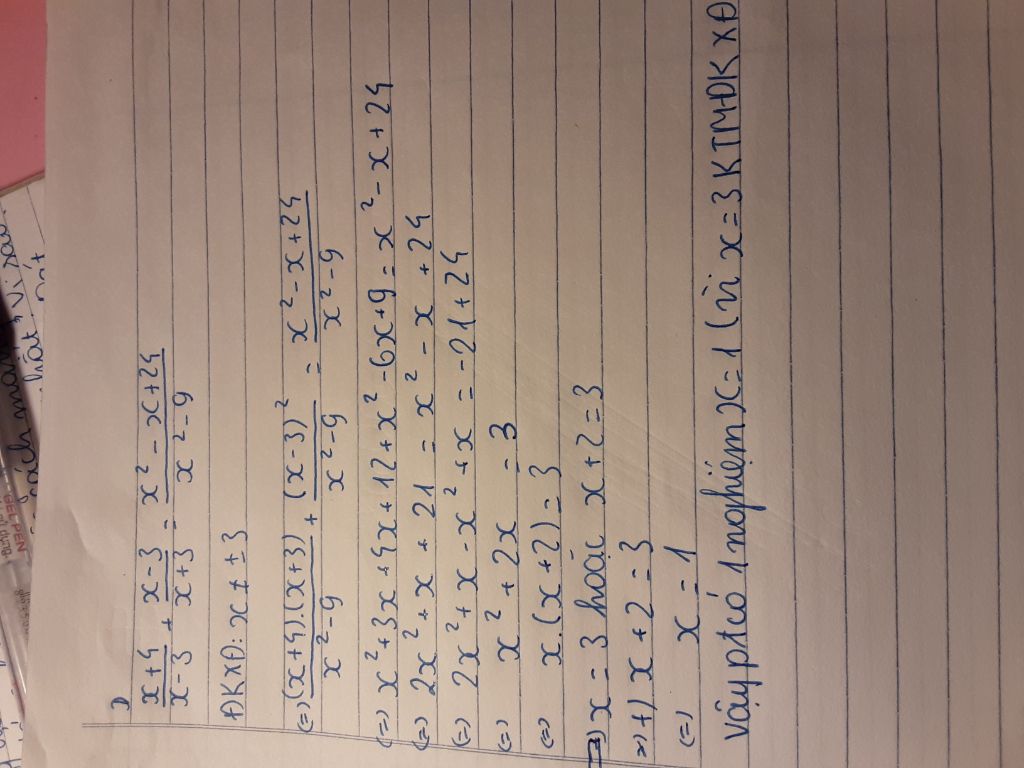 1)
x+4/x-3 + x-3/x+3 = x² - x+24/x²-9
ĐKXĐ: x ≠ ±3
(=) (x+4).(x+3)/x²-9 + (x-3)²/x²-9 = x²-x+24/x²-9
(=) x²+3x+4x+12+x²-6x+9 = x²-x+24
(=) 2x²+x+21 = x²-x+24
(=) 2x²+x-x²+x = -21+24
(=) x²+2x = 3
(=) x.(x+2) = 3
=) x = 3 hoặc x+2=3
=) +) x+2=3
(=) x = 1
Vậy pt có 1 nghiệm x=1 (vì x=3 KTMĐKXĐ